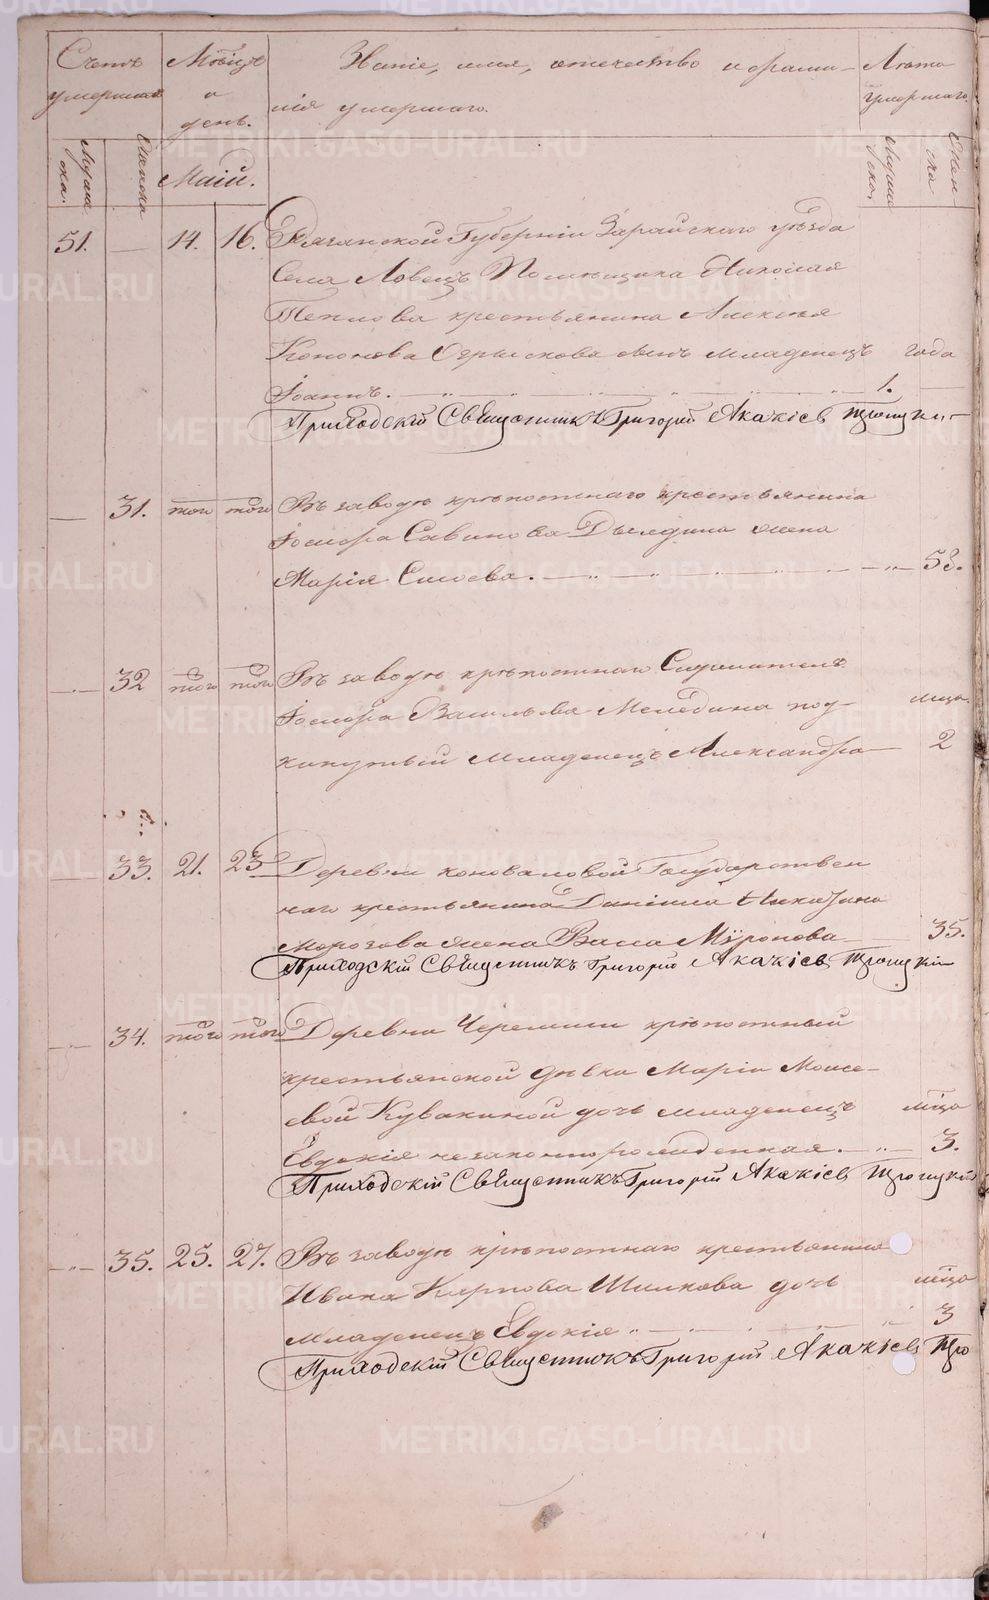 Счетъ умершихъ
Мѣсяцъ и день.
Званіе, имя, отечество и фами-
лія умершаго.
Лѣта умершаго.
Мужеска.
Женска
Маій.
Мужеска
Женска
51. — 14. 16. Рязанской Губерніи Зарайскаго уѣзда
Села Ловецъ Помѣщика Николая
Теплова крестьянина Алексѣя
Кононова сынъ младенецъ года
Іоаннъ. 1. —
Приходскій Священникъ Григорій Акакіев Троицкі
— 31. того того Въ заводѣ крѣпостнаго крестьянина
Савинова жена
Марія Сысоева. — 53.
— 32 того того Въ заводѣ крѣпостнаго
Васильева Меледина под-
кинутый младенецъ Александра — 2
— 33. 21. 23 Деревни Коноваловой Государствен
наго крестьянина Даніила
Морозова жена Васса Миронова — 35.
Приходскій Священникъ Григорій Акакіев Троицкій
— 34. того того Деревни Черемши крѣпостный
крестьянской дѣвки Маріи Моисе-
евой Кувакиной дочь младенецъ мѣца
Евдокія незаконнорожденная. — 3.
Приходскій Священникъ Григорій Акакіев Троицкій
— 35. 25. 27. Въ заводѣ крѣпостнаго крестьянина
Ивана Карпова дочь мѣца
младенецъ Евдокія — 3
Приходскій Священникъ Григорій Акакіев Тро
METRIKI.GASO-URAL.RU